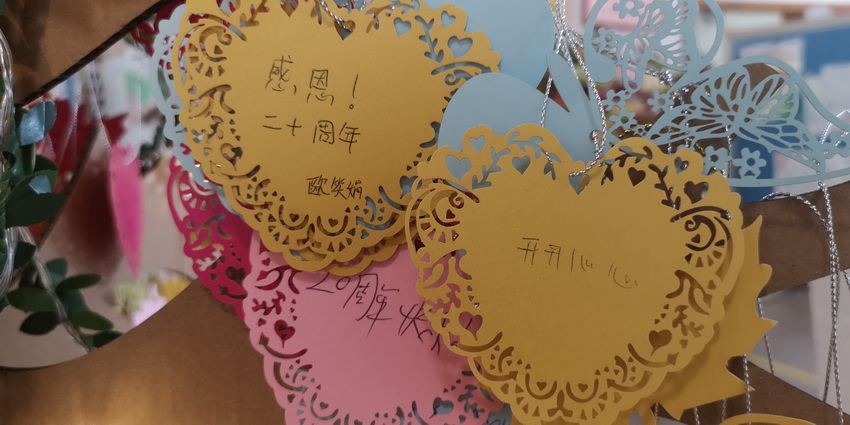 感恩！
二十周年
开开心心
20周年快